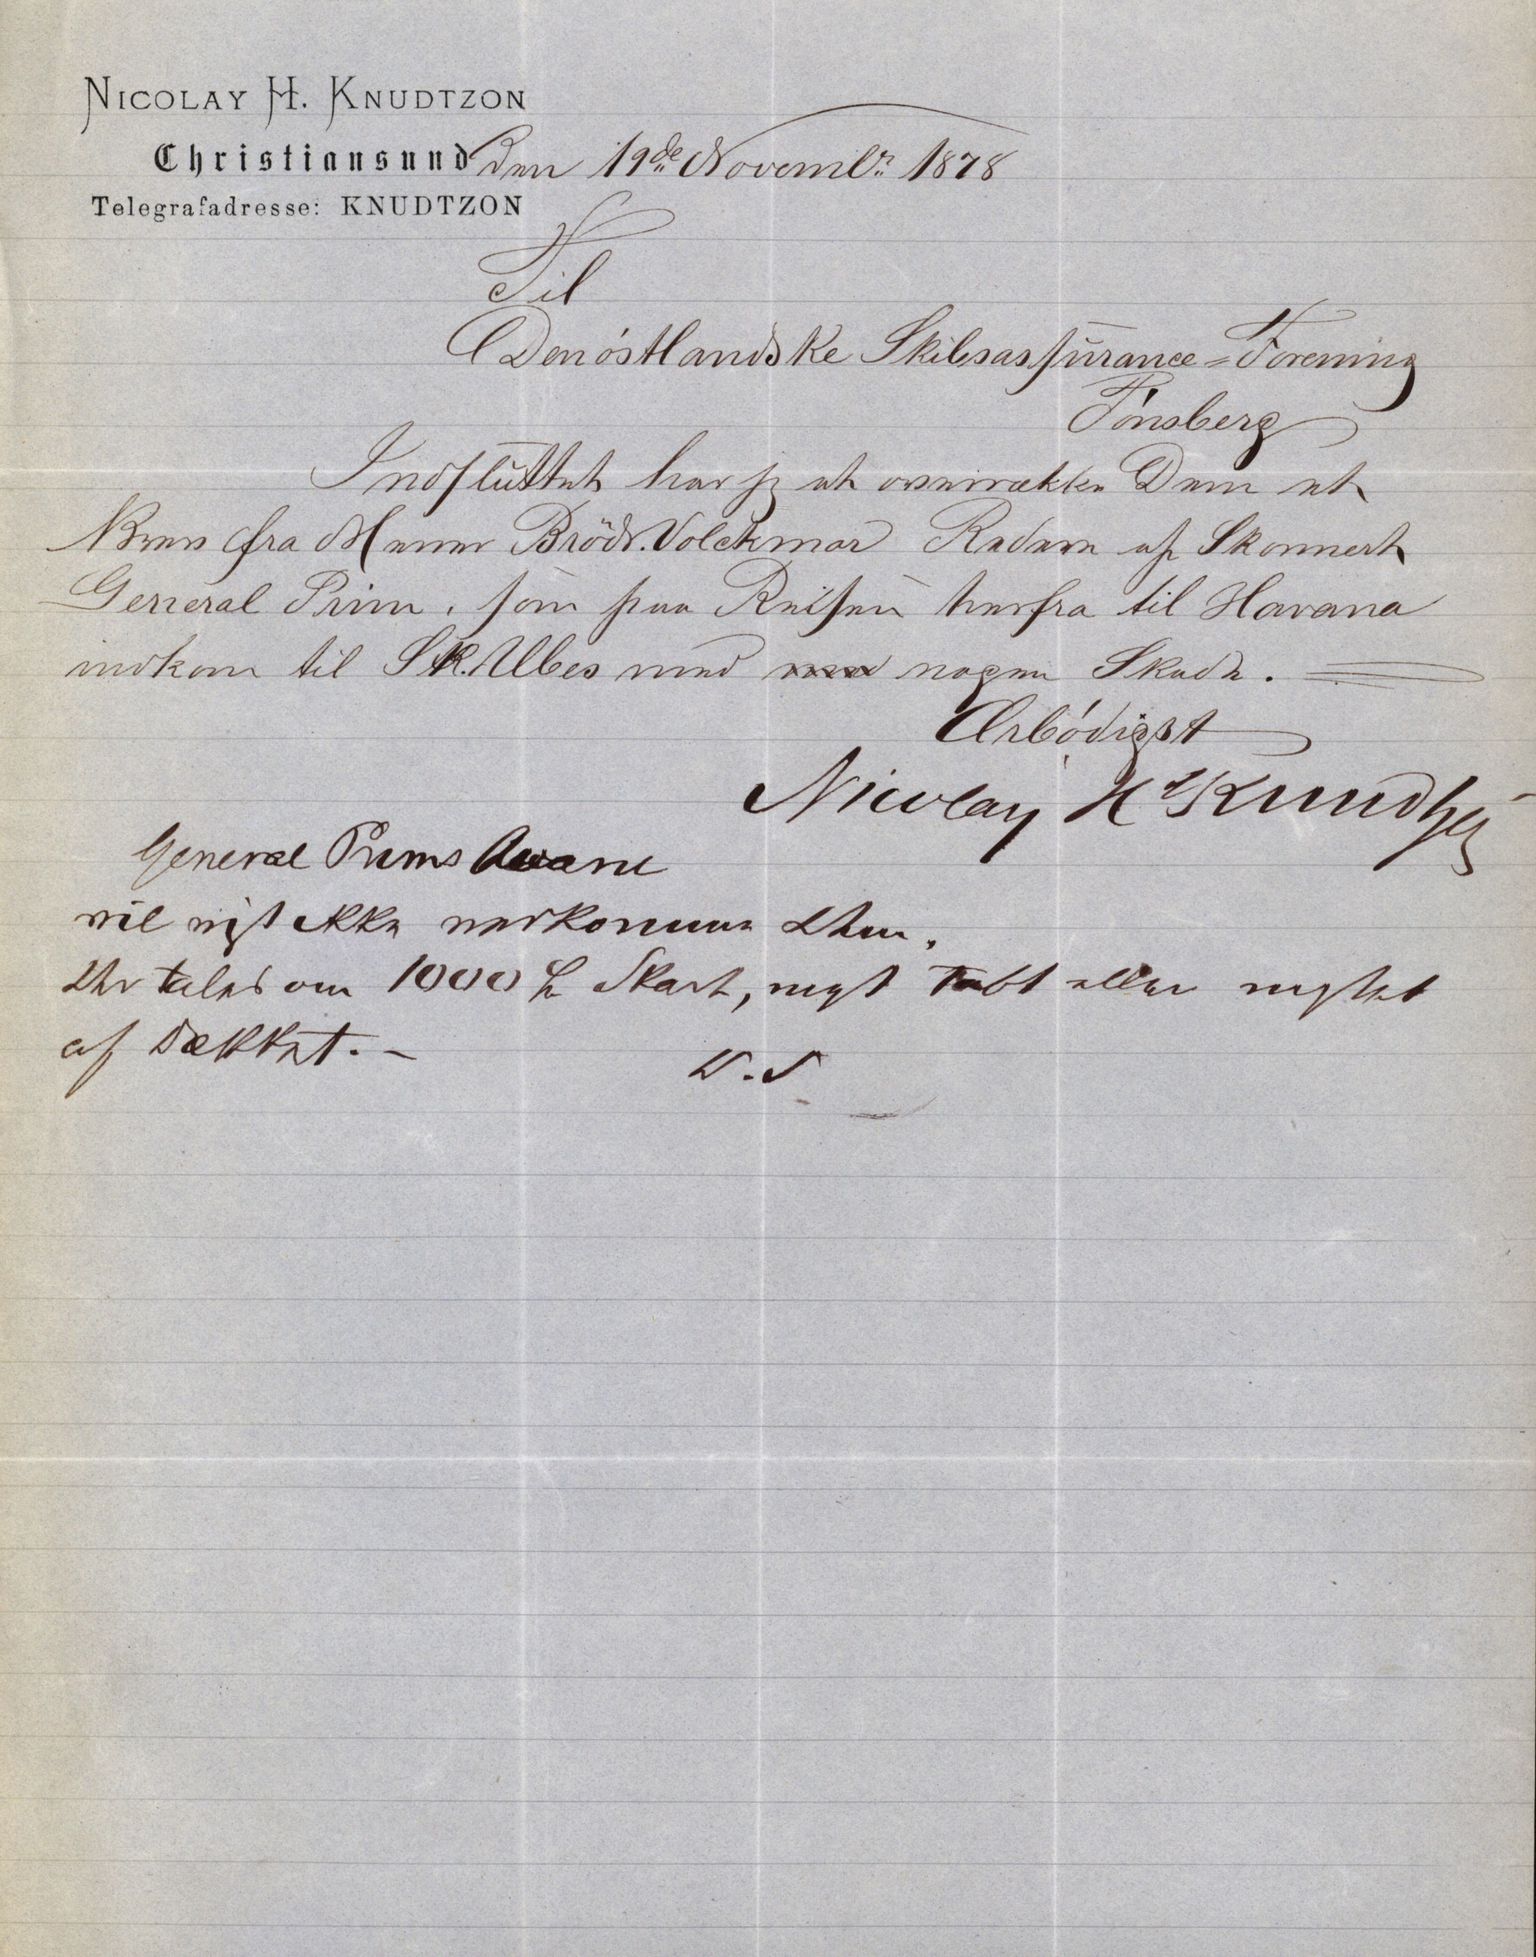 NICOLAY H. KNUDTZON
Christiansund den 19de Novembr 1878
Telegrafadresse: KNUDTZON
Til
Den östlandske Skibsassurance-Forening
Tönsberg
Indsluttet har jeg at overrække Dem et
Brev fra Herrer Brödr. Volckmar Redere af Skonnert
General Prim, som paa Reisen herfra til Havana
indkom til St. Ubes med nogen Skade.
Ærbödigst
Nicolay H. Knudtzon
General Prims Avarie
vil vist ikke vedkomme Dem,
der tales om 1000 Skade, mest Tabt eller
af Dækket. -
D. S